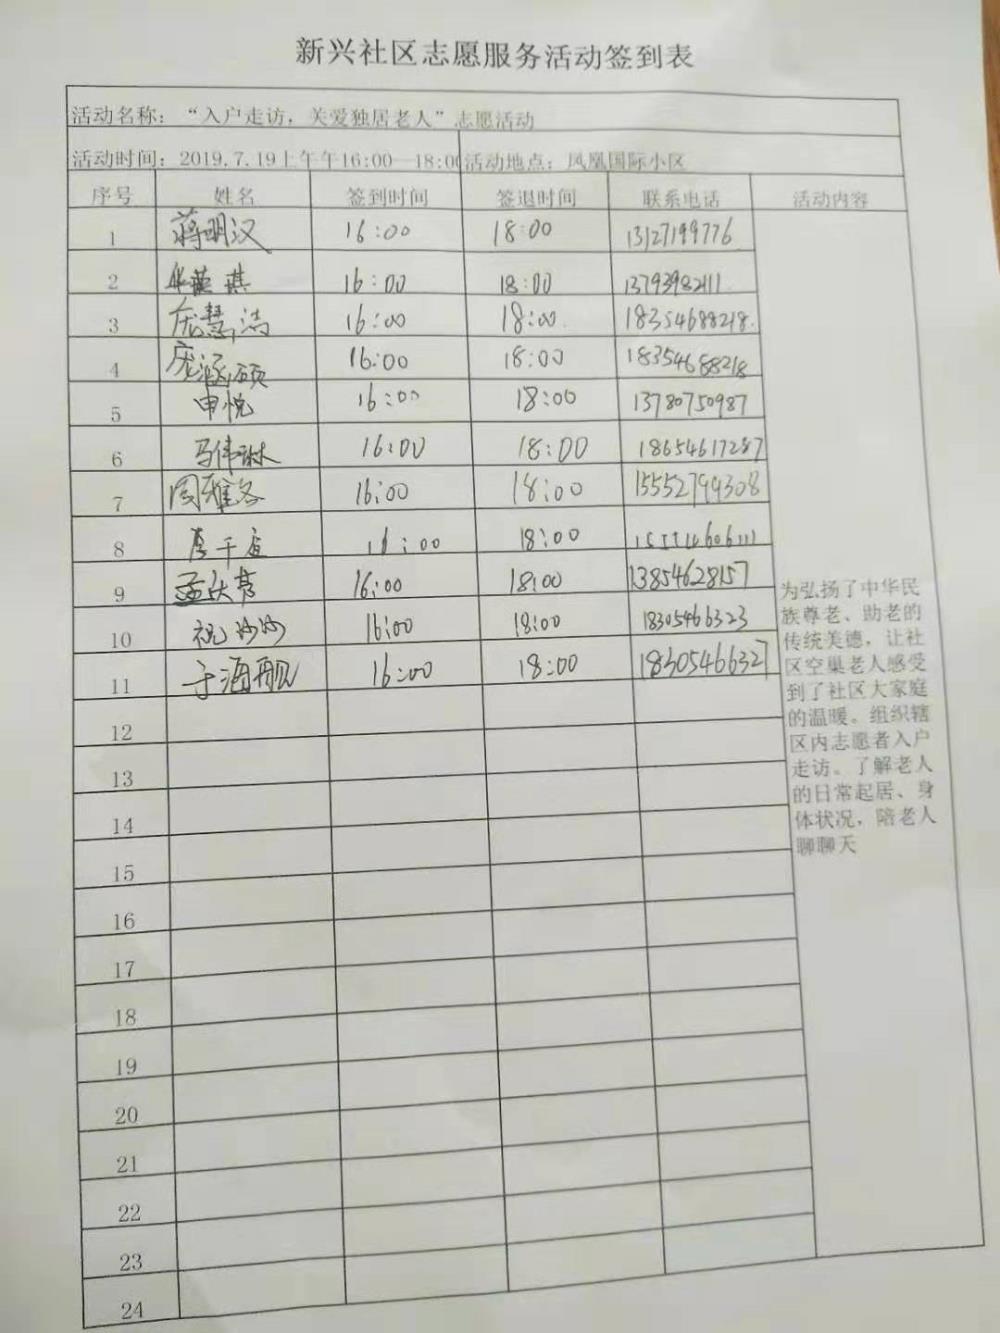 新兴社区志愿服务活动签到表
活动名称：“入户走访，关爱独居老人”志愿活动
活动时间：2019.7.19上午午16:00—18:00 活动地点：凤凰国际小区
序号 姓名 签到时间 签退时间 联系电话 活动内容
1 蒋明汉 16:00 18:00 13127199776
2 16:00 18:00 13793982111
3 庞慧洁 16:00 18:00 18354688218
4 庞涵硕 16:00 18:00 18354688218
5 申悦 16:00 18:00 13780750987
6 马伟琳 16:00 18:00 18654617287
7 周雅洛 16:00 18:00 15552799308
8 16:00 18:00
9 16:00 18:00 13854628157
10 祝妙妙 16:00 18:00 18305466323
11 于海舰 16:00 18:00 1830546632
12
13
14
15
16
17
18
19
20
21
22
23
24
为弘扬了中华民
族尊老、助老的
传统美德，让社
区空巢老人感受
到了社区大家庭
的温暖。组织辖
区内志愿者入户
走访。了解老人
的日常起居、身
体状况，陪老人
聊聊天